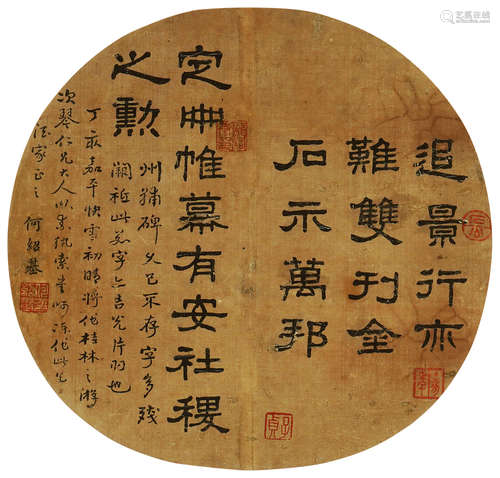 追景行亦
難雙刊金
石示萬邦
子貞
定冊帷幕有安社稷
之勳
州輔碑久已不存字多殘
闕祗此字亦吉光片羽也
丁亥嘉平快雪初晴將作桂林之游
次琴仁兄大人以素紈索書呵凍作此乞
法家正之 何紹基